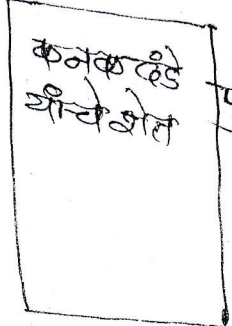 कनकदंडे
यांचे शेत